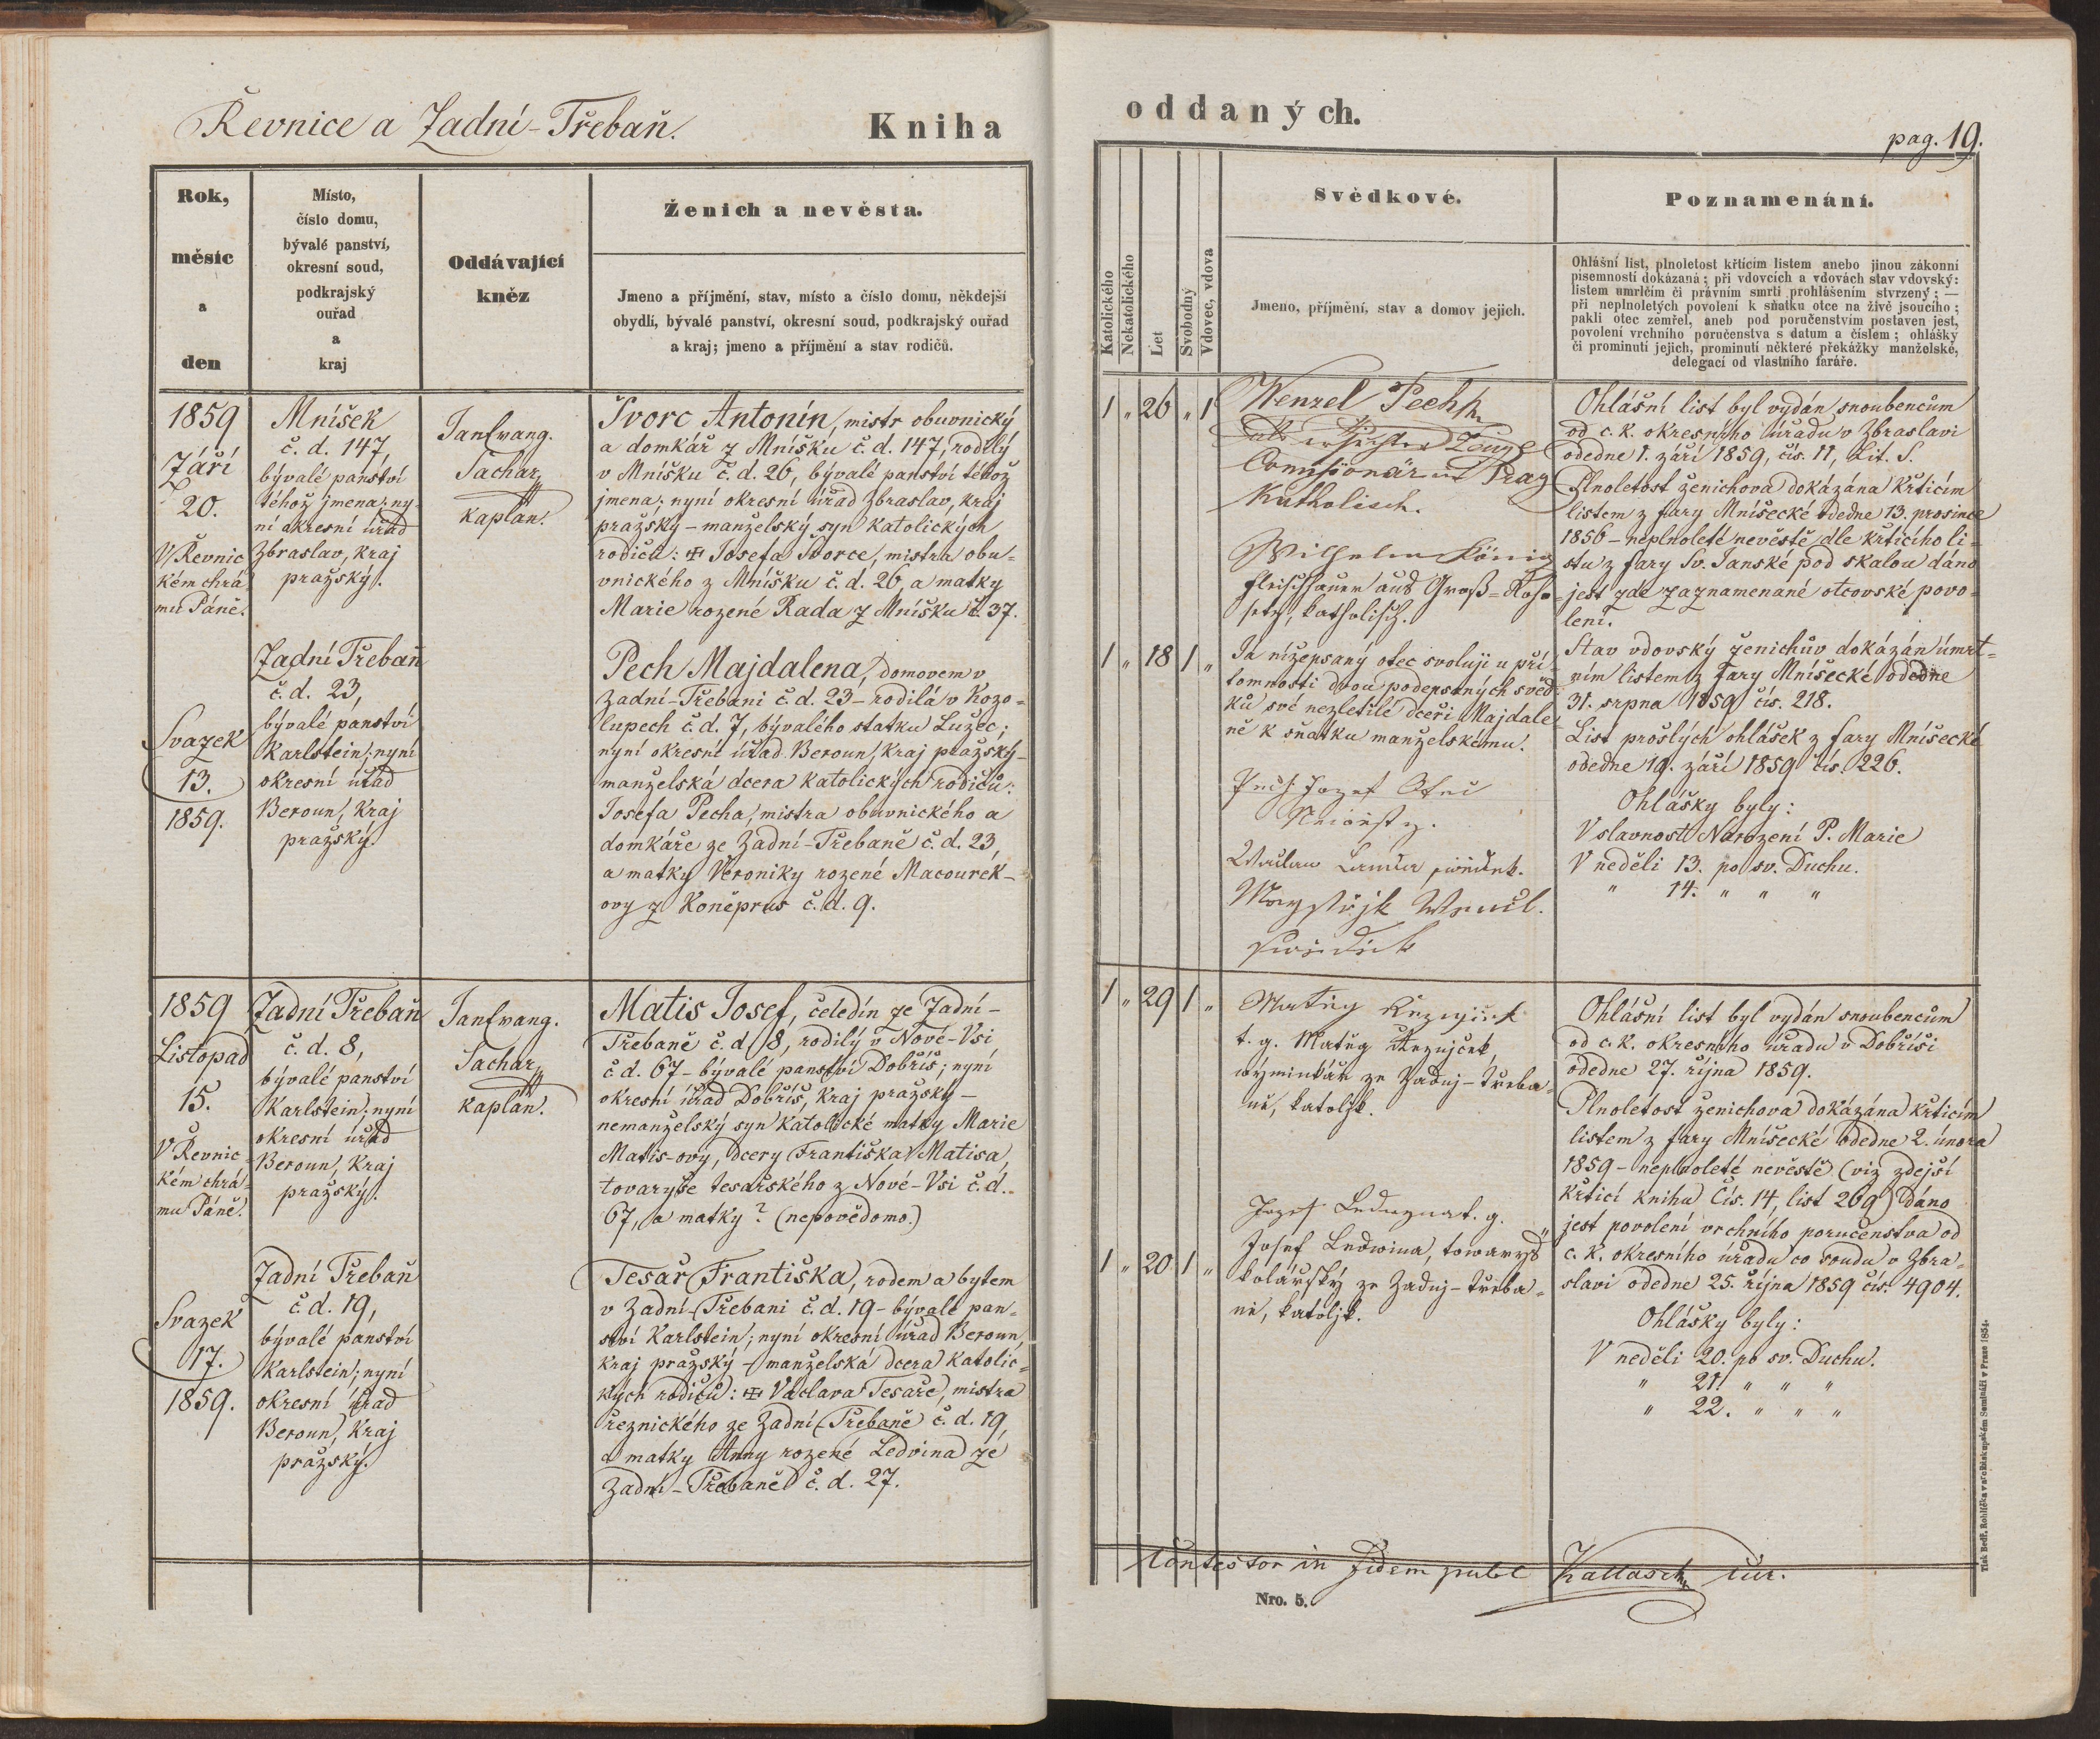 Řevnice a Zadní-Třebaň.
Kniha
Rok,
měsíc
a
den
Místo,
číslo domu,
bývalé panství,
okresní soud,
podkrajský
ouřad
a
kraj
Oddávající
kněz
Ženich a nevěsta.
Jmeno a příjmění, stav, místo a číslo domu, někdejší
obydlí, bývalé panství, okresní soud, podkrajský ouřad
a kraj; jmeno a příjmění a stav rodičů.
1859
Září
20.
V Řevnic
kém chrá
mu Páně.
Svazek
13.
1859.
Mníšek
č. d. 147,
bývalé panství
téhož jmena; ny-
ní okresní úřad
Zbraslav, kraj
pražský.
Zadní Třebaň
č. d. 23,
bývalé panství
Karlstein; nyní
okresní úřad
Beroun, kraj
pražský.
Jan Evang.
Tachar,
kaplan.
Švorc Antonín, mistr obuvnický
a domkář z Mníšku č. d. 147, rodilý
v Mníšku č. d. 26, bývalé panství téhož
jmena; nyní okresní úřad Zbraslav, kraj
pražský – manželský syn katolických
rodičů: Josefa Švorce, mistra obu-
vnického z Mníšku č. d. 26, a matky
Marie rozené Rada z Mníšku č. 37.
Pech Majdalena, domovem v
Zadní-Třebani č. d. 23 – rodilá v Kozo-
lupech č. d. 7, bývalého statku Lužec;
nyní okresní úřad Beroun, kraj pražský –
manželská dcera katolických rodičů:
Josefa Pecha, mistra obuvnického a
domkáře ze Zadní-Třebaně č. d. 23,
a matky Veroniky rozené Macourek-
ovy z Koněprus č. d. 9.
1859
Listopad
15.
V Řevnic-
kém chrá-
mu Páně.
Svazek
17.
1859.
Zadní Třebaň
č. d. 8,
bývalé panství
Karlstein; nyní
okresní úřad
Beroun, kraj
pražský.
Zadní Třebaň
č. d. 19,
bývalé panství
Karlstein; nyní
okresní úřad
Beroun, kraj
pražský.
Jan Evang.
Tachar,
kaplan.
Matis Josef, čeledín ze Zadní-
Třebaně č. d. 8, rodilý v Nové-Vsi
č. d. 67 – bývalé panství Dobříš; nyní
okresní úřad Dobříš, kraj pražský –
nemanželský syn katolické matky Marie
Matis-ovy, dcery Františka Matisa,
tovaryše tesařského z Nové-Vsi č. d.
67, a matky? (nepovědomo.)
Tesař Františka, rodem a bytem
v Zadní-Třebani č. d. 19 – bývalé pan-
ství Karlstein; nyní okresní úřad Beroun,
kraj pražský – manželská dcera katolic-
kých rodičů: Václava Tesaře, mistra
řeznického ze Zadní-Třebaně č. d. 19,
a matky Anny rozené Ledvina ze
Zadní-Třebaně č. d. 27.
oddaných.
pag. 19.
Katolického
Nekatolického
Let
Svobodný
Vdovec, vdova
Svědkové.
Jmeno, příjmění, stav a domov jejich.
Poznamenání.
Ohlášní list, plnoletost křticím listem anebo jinou zákonní
písemností dokázaná; při vdovcích a vdovách stav vdovský:
listem umrlčím či právním smrti prohlášením stvrzený; —
při neplnoletých povolení k sňatku otce na živě jsoucího;
pakli otec zemřel, aneb pod poručenstvím postaven jest,
povolení vrchního poručenstva s datum a číslem; ohlášky
či prominutí jejich, prominutí některé překážky manželské,
delegací od vlastního faráře.
1 " 26 " 1
Wenzel Pech
als ersuchter Zeuge
Comissionär in Prag
Katholisch.
Wilhelm König
Fleischhauer aus Groß-
katholisch.
1 " 18 1 "
Já nížepsaný otec svoluji u pří-
tomnosti dvou podepsaných svěd-
ků své nezletilé dceři Majdale-
ně k sňatku manželskému.
Pech Jozef Otec
Newěsty.
Waclaw
Wencl.
Ohlášní list byl vydán snoubencům
od c. k. okresního úřadu v Zbraslavi
odedne 1. září 1859, čís. 11, Lit. S.
Plnoletost ženichova dokázána křticím
listem z fary Mníšecké odedne 13. prosince
1856 – neplnoleté nevěstě dle křticího li-
stu z fary Sv. Janské pod skalou dáno
jest zde zaznamenané otcovské povo-
lení.
Stav vdovský ženichův dokázán úmrt-
ním listem z fary Mníšecké odedne
31. srpna 1859 čís. 218.
List prošlých ohlášek z fary Mníšecké
odedne 19. září 1859 čís. 226.
Ohlášky byly:
V slavnost Narození P. Marie
V neděli 13. po sv. Duchu.
" 14. " " "
1 " 29 1 "
Matěg
t. g. Matěg Řeznjček,
weyminkář ze Zadnj-Třeba-
ně, katoljk.
1 " 20 1 "
Jozef Ledwyna t. g.
Josef Ledwina, towaryš
kolářský ze Zadnj-Třeba-
ně, katoljk.
Ohlášní list byl vydán snoubencům
od c. k. okresního úřadu v Dobříši
odedne 27. října 1859.
Plnoletost ženichova dokázána křticím
listem z fary Mníšecké odedne 2. února
1859 – neplnoleté nevěstě (viz zdejší
křticí knihu Čís. 14, list 269) dáno
jest povolení vrchního poručenstva od
c. k. okresního úřadu co soudu v Zbra-
slavi odedne 25. října 1859 čís. 4904.
Ohlášky byly:
V neděli 20. po sv. Duchu.
" 21. " " "
" 22. " " "
Contestor in fidem publ Kallasch, cur.
Nro. 5.
Tisk Bedř. Rohlíčka v arcibiskupském Semináři v Praze 1854.